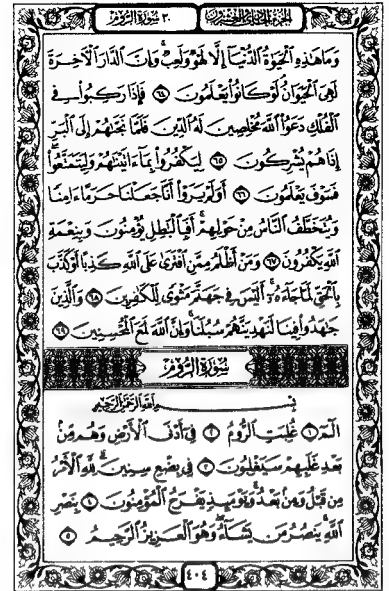 الجزء الحادي والعشرون
٣٠ سورة الروم
وَمَا هَٰذِهِ ٱلْحَيَوٰةُ ٱلدُّنْيَآ إِلَّا لَهْوٌ وَلَعِبٌ ۚ وَإِنَّ ٱلدَّارَ ٱلْءَاخِرَةَ
لَهِىَ ٱلْحَيَوَانُ ۚ لَوْ كَانُوا۟ يَعْلَمُونَ ٦٤ فَإِذَا رَكِبُوا۟ فِى
ٱلْفُلْكِ دَعَوُا۟ ٱللَّهَ مُخْلِصِينَ لَهُ ٱلدِّينَ فَلَمَّا نَجَّىٰهُمْ إِلَى ٱلْبَرِّ
إِذَا هُمْ يُشْرِكُونَ ٦٥ لِيَكْفُرُوا۟ بِمَآ ءَاتَيْنَٰهُمْ وَلِيَتَمَتَّعُوا۟ ۖ
فَسَوْفَ يَعْلَمُونَ ٦٦ أَوَلَمْ يَرَوْا۟ أَنَّا جَعَلْنَا حَرَمًا ءَامِنًا
وَيُتَخَطَّفُ ٱلنَّاسُ مِنْ حَوْلِهِمْ ۚ أَفَبِٱلْبَٰطِلِ يُؤْمِنُونَ وَبِنِعْمَةِ
ٱللَّهِ يَكْفُرُونَ ٦٧ وَمَنْ أَظْلَمُ مِمَّنِ ٱفْتَرَىٰ عَلَى ٱللَّهِ كَذِبًا أَوْ كَذَّبَ
بِٱلْحَقِّ لَمَّا جَآءَهُۥٓ ۚ أَلَيْسَ فِى جَهَنَّمَ مَثْوًى لِّلْكَٰفِرِينَ ٦٨ وَٱلَّذِينَ
جَٰهَدُوا۟ فِينَا لَنَهْدِيَنَّهُمْ سُبُلَنَا ۚ وَإِنَّ ٱللَّهَ لَمَعَ ٱلْمُحْسِنِينَ ٦٩
سُورَةُ الرُّومِ
بِسْمِ ٱللَّهِ ٱلرَّحْمَٰنِ ٱلرَّحِيمِ
الٓمٓ ١ غُلِبَتِ ٱلرُّومُ ٢ فِىٓ أَدْنَى ٱلْأَرْضِ وَهُم مِّنۢ
بَعْدِ غَلَبِهِمْ سَيَغْلِبُونَ ٣ فِى بِضْعِ سِنِينَ ۗ لِلَّهِ ٱلْأَمْرُ
مِن قَبْلُ وَمِنۢ بَعْدُ ۚ وَيَوْمَئِذٍ يَفْرَحُ ٱلْمُؤْمِنُونَ ٤ بِنَصْرِ
ٱللَّهِ ۚ يَنصُرُ مَن يَشَآءُ ۖ وَهُوَ ٱلْعَزِيزُ ٱلرَّحِيمُ ٥
٤٠٤